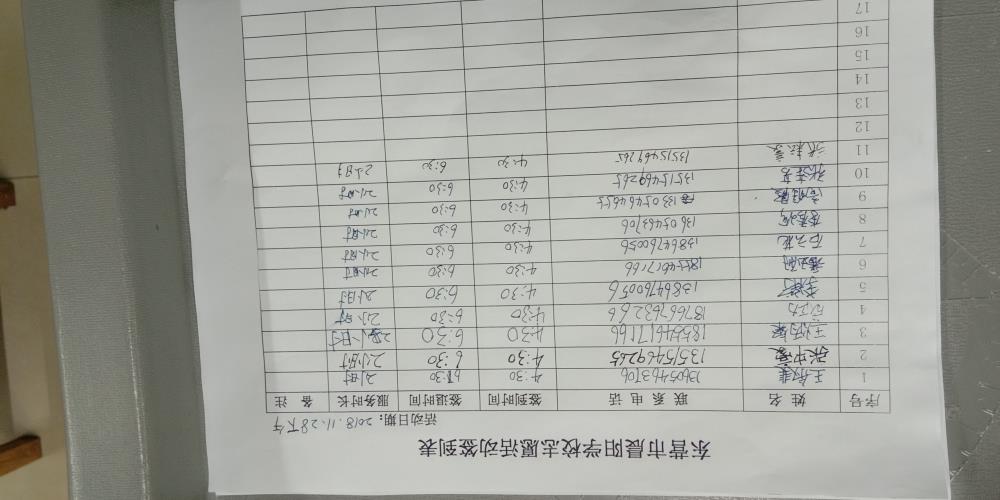 东营市晨阳学校志愿活动签到表
活动日期：2018.11.28下午
序号 姓名 联系电话 签到时间 签退时间 服务时长 备注
1 13605463706 4:30 6:30 2小时
2 张中豪 13515469265 4:30 6:30 2小时
3 18554617166 4:30 6:30 2小时
4 18766763266 4:30 6:30 2小时
5 13864760056 4:30 6:30 2小时
6 18554617166 4:30 6:30 2小时
7 13864760056 4:30 6:30 2小时
8 13605463706 4:30 6:30 2小时
9 13305464655 4:30 6:30 2小时
10 13515469265 4:30 6:30 2小时
11 13515469265 4:30 6:30 2小时
12
13
14
15
16
17